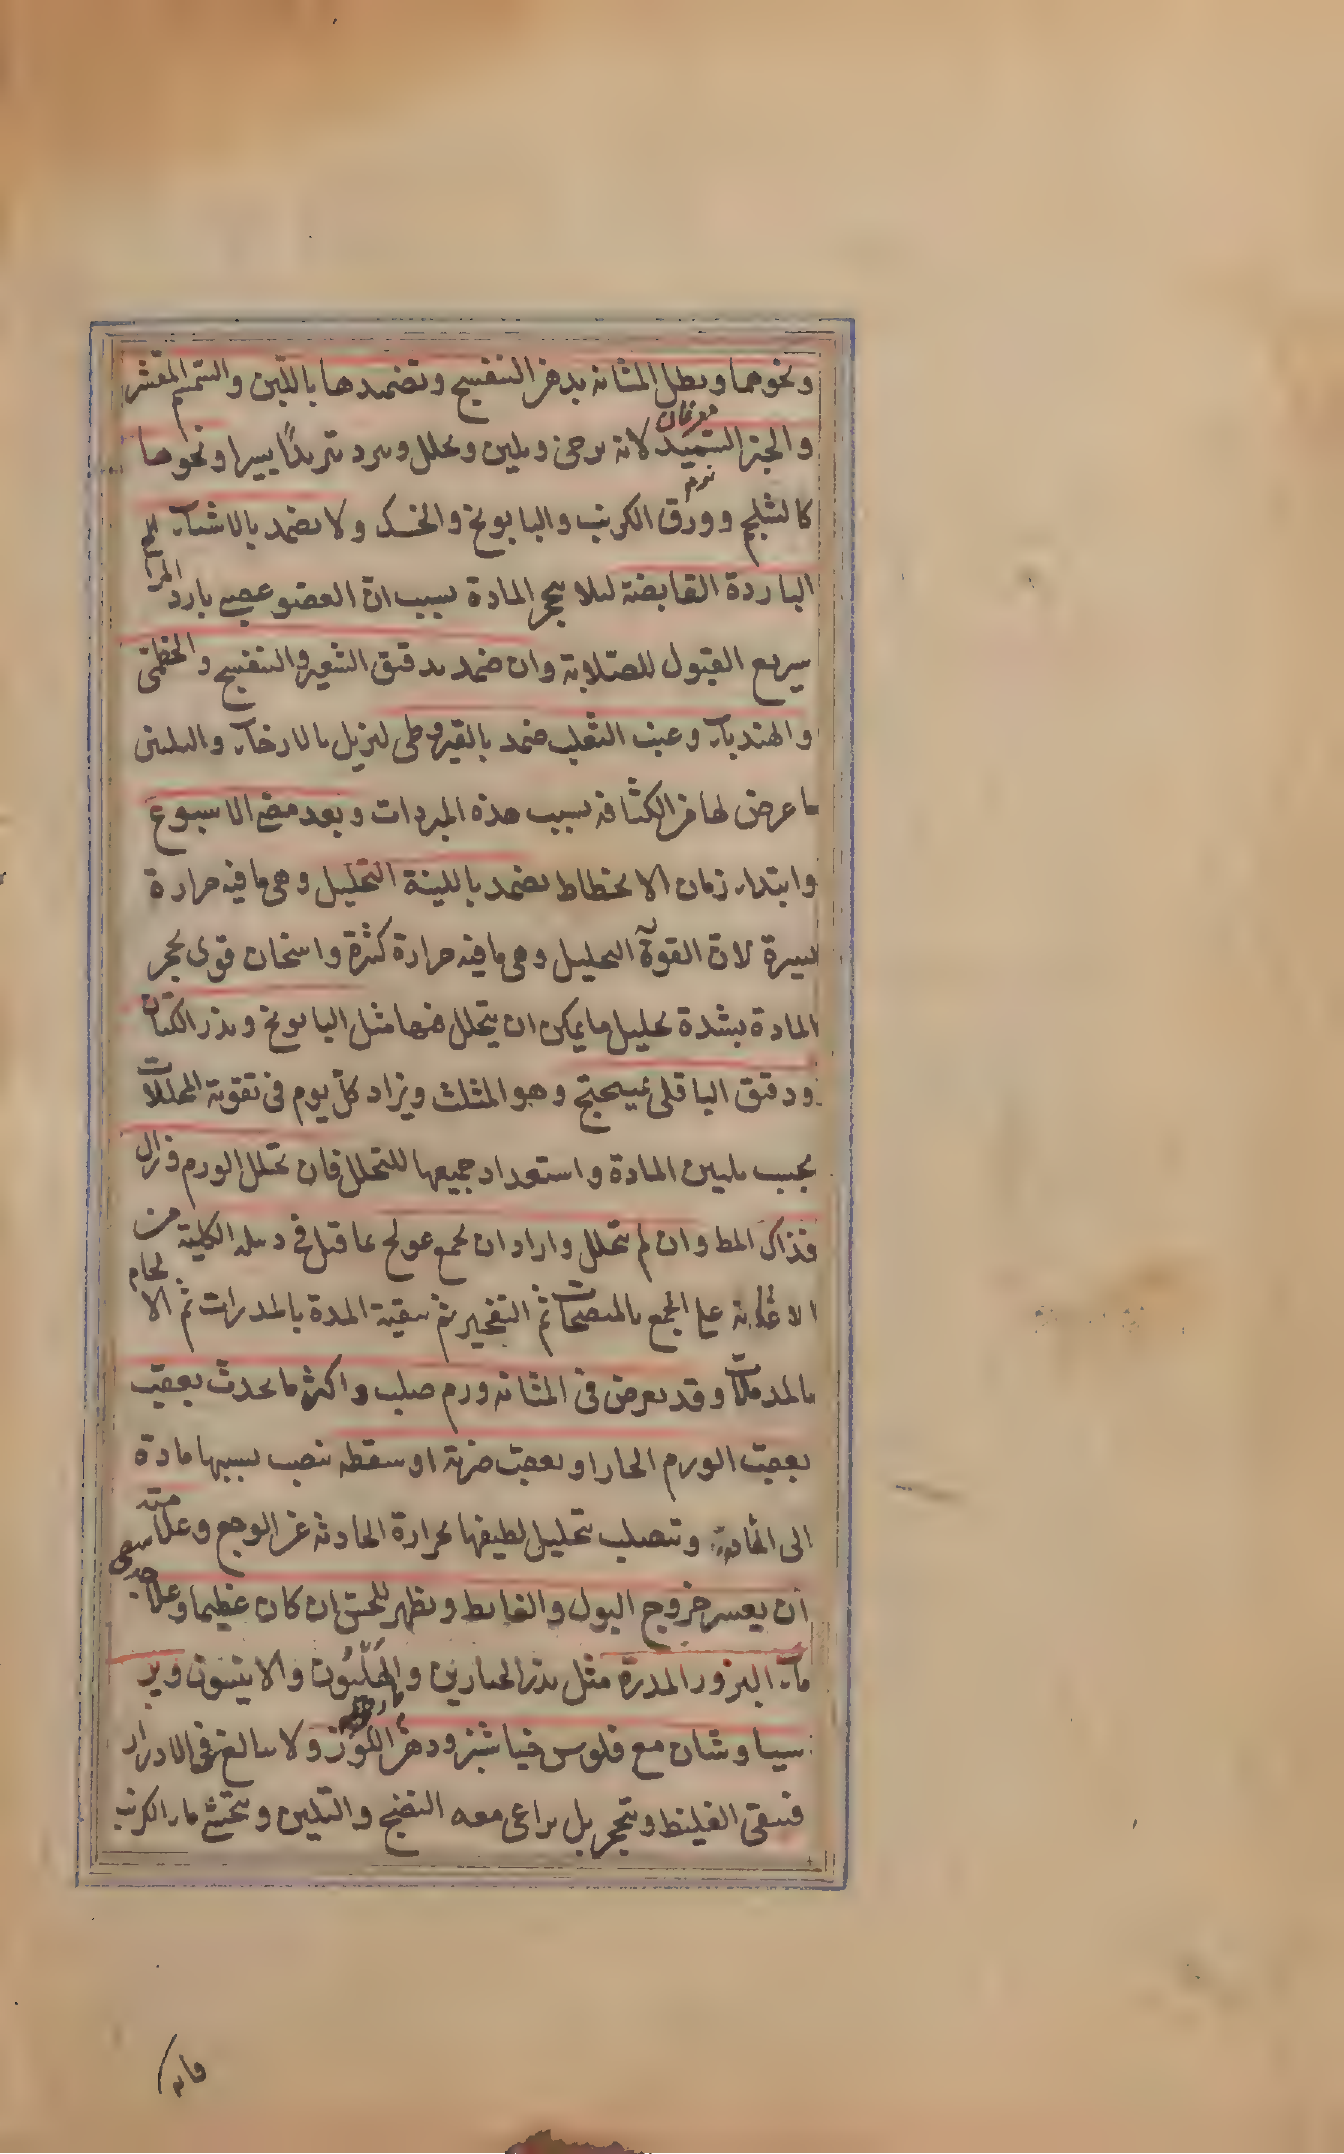 ونحوهما ويطل المثانة بدهن البنفسج وتضميدها باللبن والسمسم المقشر
والخبز السميد لانه يرخى ويلين ويحلل ويبرد تبريدًا يسيرا ونحوها
كالشلجم وورق الكرنب والبابونج والخسك ولا يضمد بالاشياء
الباردة القابضة لئلا يتحجر المادة بسبب ان العضو عصبى بارد المزاج
سريع القبول للصلابة وان ضمد بدقيق الشعير والبنفسج والخطمى
والهندباء وعنب الثعلب ضمد بالقيروطى ليزيل بالارخاء والتليين
ما عرض لها من الكثافة بسبب هذه المبردات وبعد مضى الاسبوع
وابتداء زمان الانحطاط يضمد باللينة التحليل وهى ما فيه حرارة
يسيرة لان القوية التحليل وهى ما فيه حرارة كثيرة واسخان قوى يحجر
المادة بشدة تحليل ما يمكن ان يتحلل منها مثل البابونج وبذر الكتان
ودقيق الباقلى بميبختج وهو المثلث ويزاد كل يوم فى تقوية المحللات
بحسب تليين المادة واستعداد جميعها للتحلل فان تحلل الورم وزال
فذاك المط وان لم يتحلل واراد ان يجمع عولج بما قيل فى دبيلة الكلية من
الاعانة على الجمع بالمنضجات ثم التفجير ثم تنقية المدة بالمدرات ثم الالحام
بالمدملات وقد يعرض فى المثانة ورم صلب واكثر ما يحدث بعقيب
بعقيب الورم الحار او بعقيب ضربة او سقطة تنصب بسببها مادة
الى المثانة وتتصلب بتحليل لطيفها بحرارة الحادثة عن الوجع وعلامته
ان يعسر خروج البول والغايط ويظهر للحس ان كان عظيما وعلاجه يسقى
ماء البزور المدرة مثل بذر الخيارين والهليون والانيسون وبر
سياوشان مع فلوس خيارشنبر ودهن اللوز ولا يبالغ فى الادرار
فيبقى الغليظ ويتحجر بل يراعى معه النضج والتليين ويتحسى ماء الكرنب